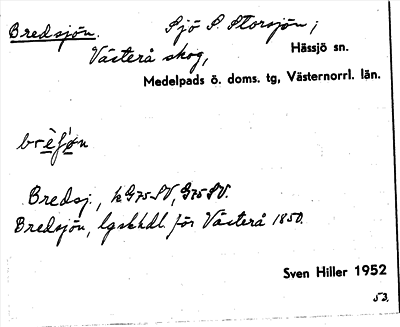 Bredsjön. Sjö S. Storsjön;
Västerå skog, Hässjö sn.
Medelpads ö. doms. tg, Västernorrl. län.
brèʃøn
Bredsj., k G75SV, G75SV.
Bredsjön, lgskhdl. för Västerå 1850.
Sven Hiller 1952
53.